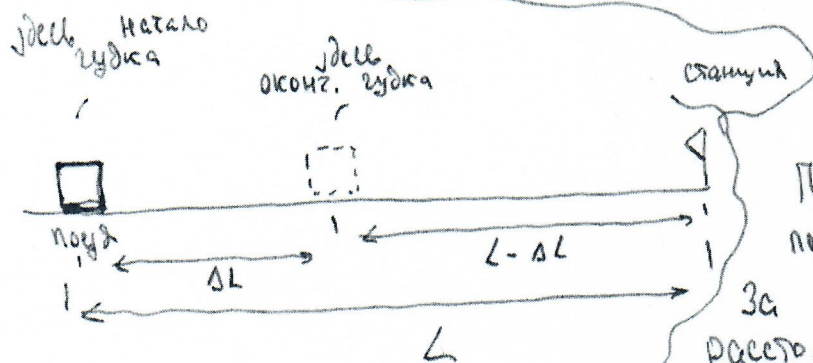 здесь начало
гудка
здесь
оконч. гудка
станция
поезд
ΔL
L - ΔL
L
П
по
За
рассто